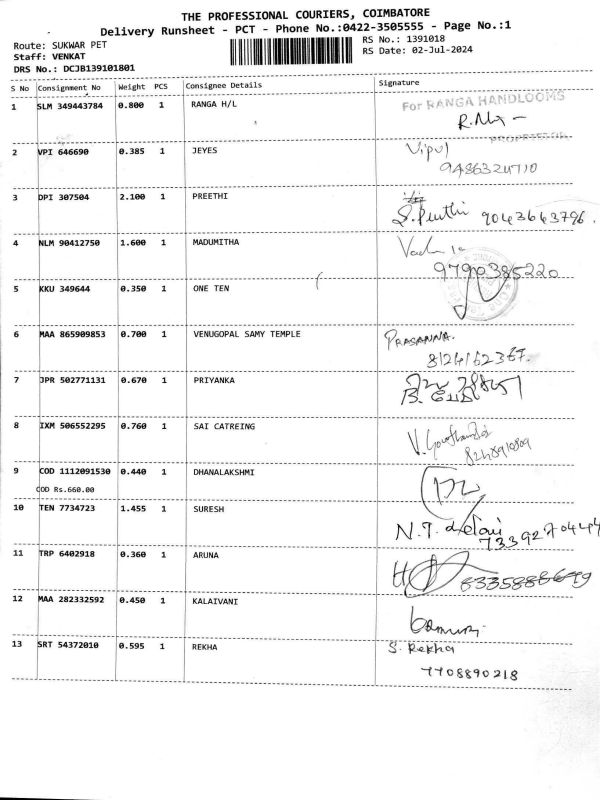 THE PROFESSIONAL COURIERS, COIMBATORE
Delivery Runsheet - PCT - Phone No.:0422-3505555 - Page No.:1
Route: SUKWAR PET
RS No.: 1391018
Staff: VENKAT
RS Date: 02-Jul-2024
DRS No.: DCJB139101801
S No Consignment No Weight PCS Consignee Details Signature
1 SLM 349443784 0.800 1 RANGA H/L For RANGA HANDLOOMS
PROPRIETOR
2 VPI 646690 0.385 1 JEYES Vipul
9486324710
3 DPI 307504 2.100 1 PREETHI
S. Preethi 9043643796.
4 NLM 90412750 1.600 1 MADUMITHA
9790385220
5 KKU 349644 0.350 1 ONE TEN
6 MAA 865909853 0.700 1 VENUGOPAL SAMY TEMPLE PRASANNA.
8124162367.
7 JPR 502771131 0.670 1 PRIYANKA
8 IXM 506552295 0.760 1 SAI CATREING
8248910809
9 COD 1112091530 0.440 1 DHANALAKSHMI
COD Rs.660.00
10 TEN 7734723 1.455 1 SURESH
N.T.
7339270444
11 TRP 6402918 0.360 1 ARUNA
8335888699
12 MAA 282332592 0.450 1 KALAIVANI
13 SRT 54372010 0.595 1 REKHA S. Rekha
7708890218